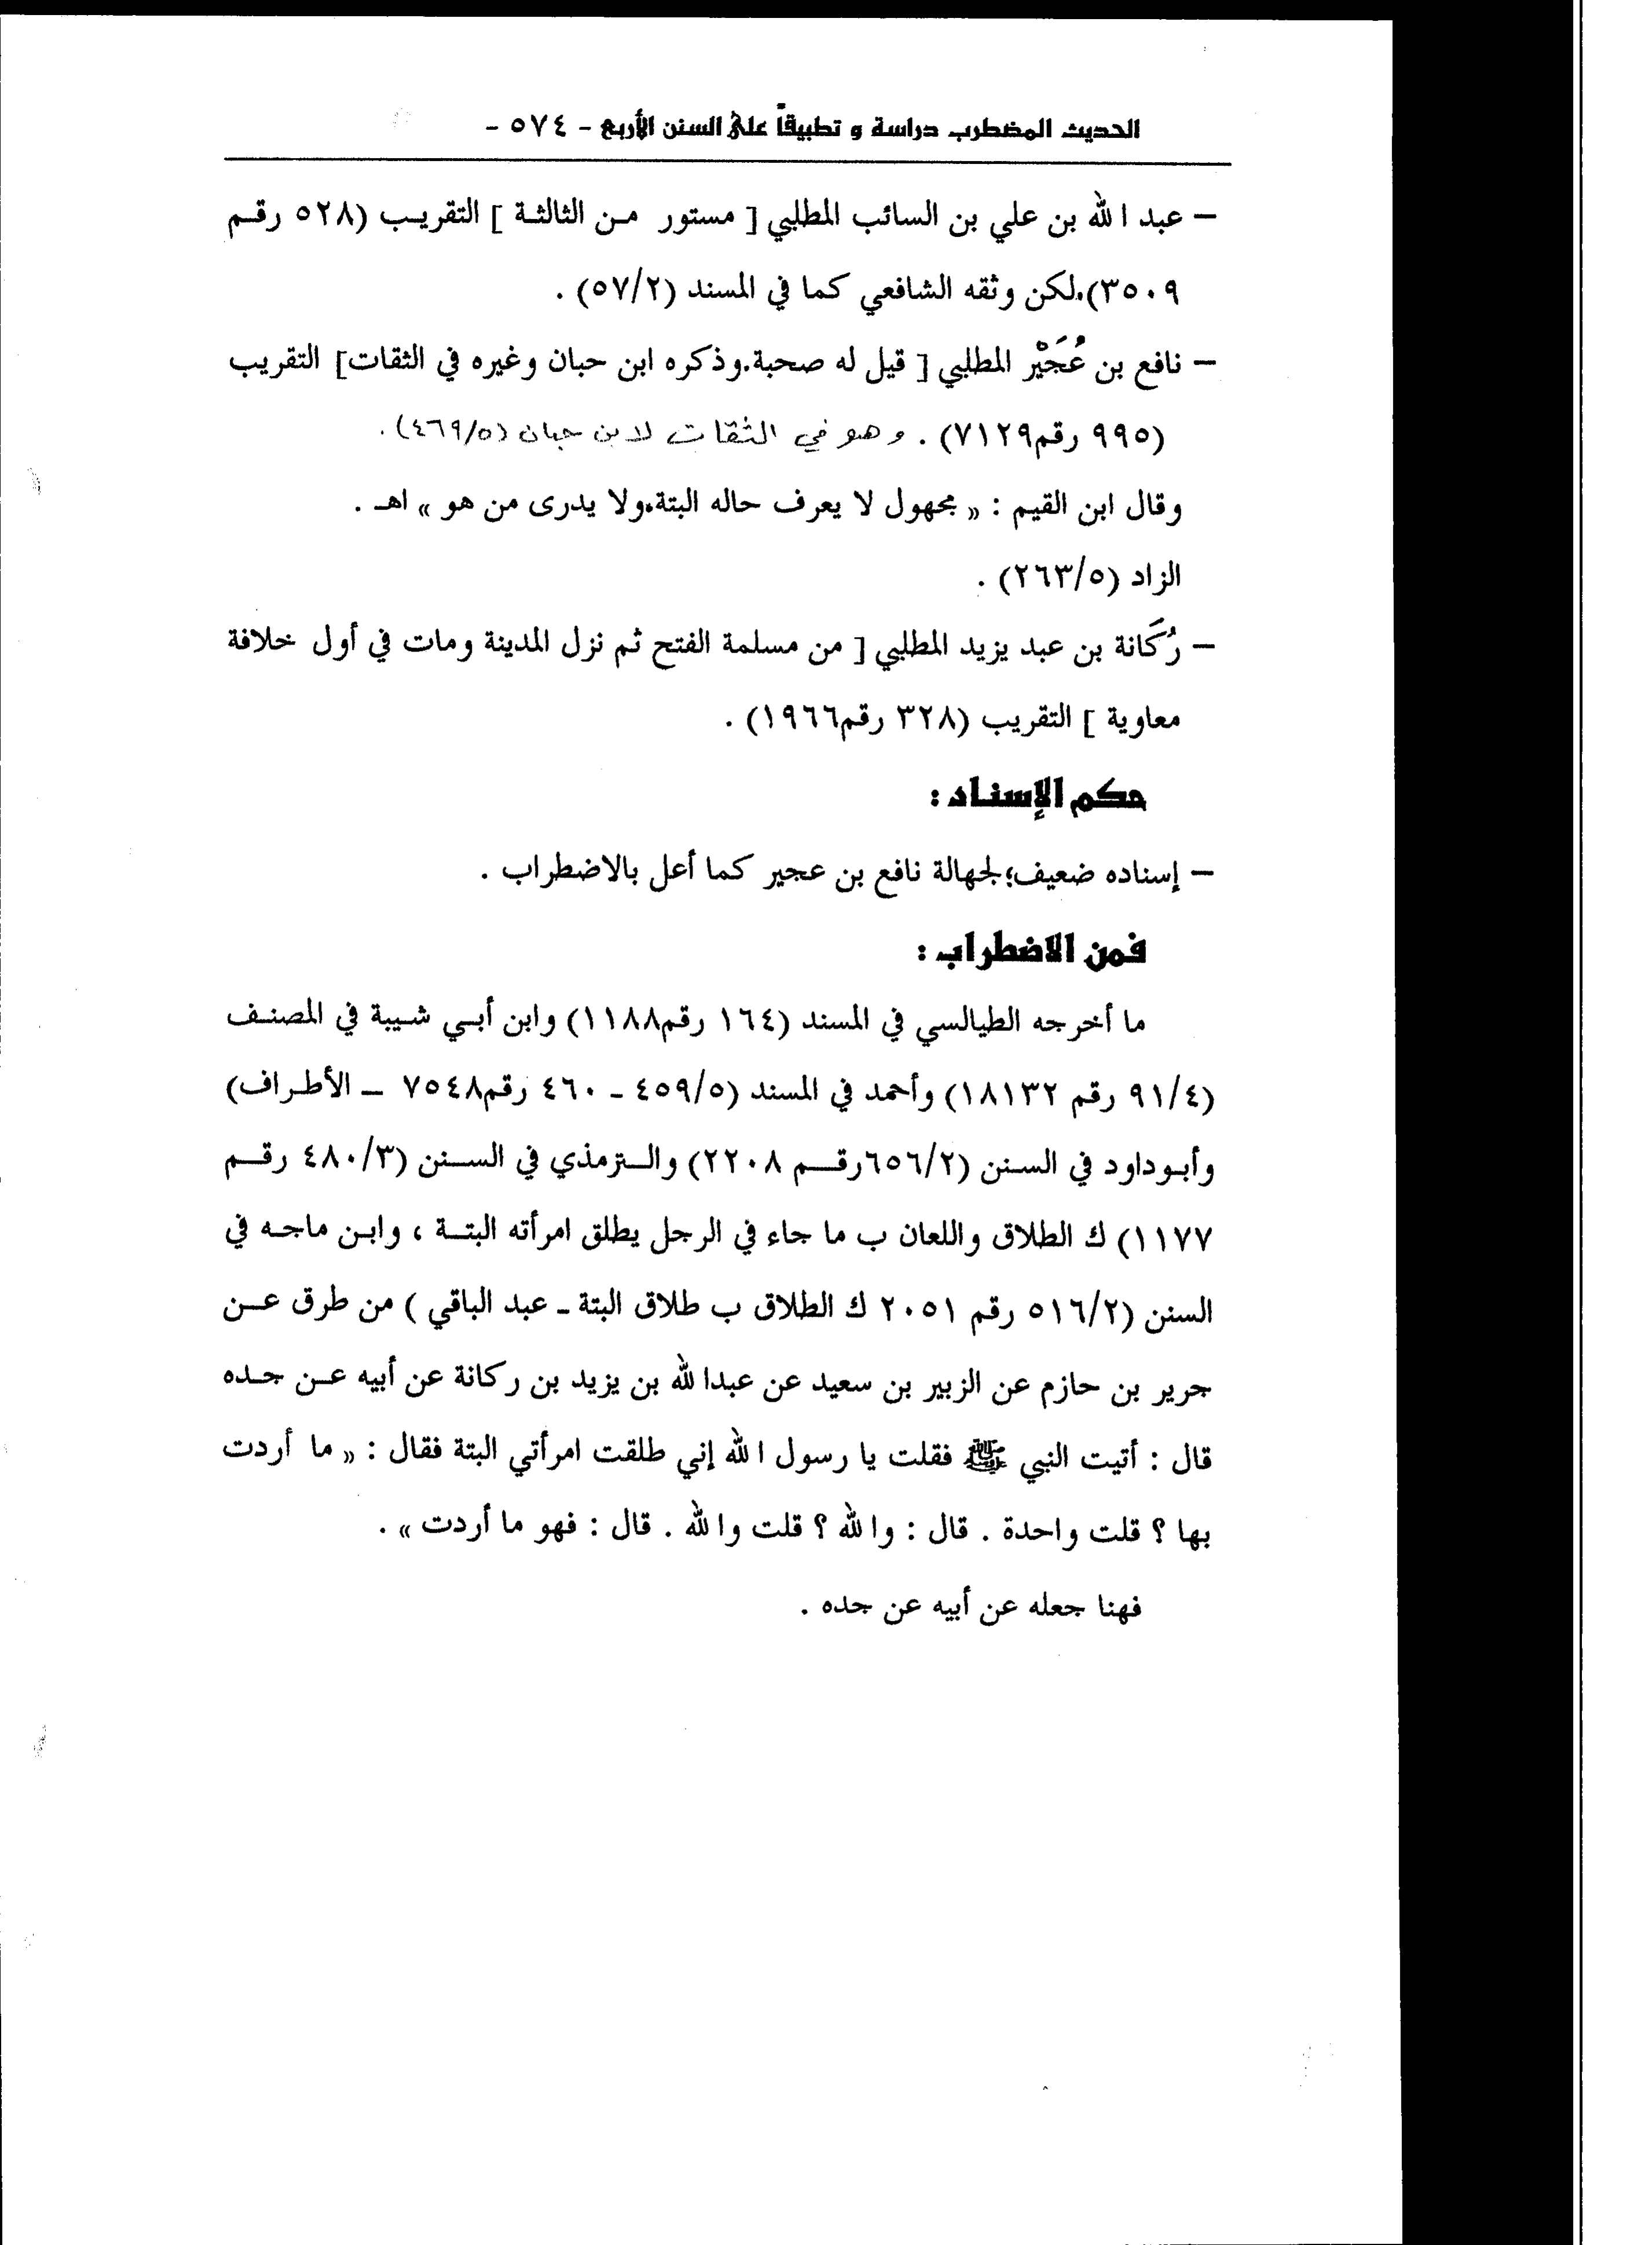 الحديث المضطرب دراسة و تطبيقاً على السنن الأربع - ٥٧٤ -
– عبد الله بن علي بن السائب المطلبي [ مستور من الثالثة ] التقريب (٥٢٨ رقم
٣٥٠٩)،لكن وثقه الشافعي كما في المسند (٥٧/٢) .
– نافع بن عُجَيْر المطلبي [ قيل له صحبة.وذكره ابن حبان وغيره في الثقات] التقريب
(٩٩٥ رقم٧١٢٩) . وهو في الثقات لابن حبان (٤٦٩/٥).
وقال ابن القيم : « مجهول لا يعرف حاله البتة،ولا يدرى من هو » اهـ .
الزاد (٢٦٣/٥) .
– رُكَانة بن عبد يزيد المطلبي [ من مسلمة الفتح ثم نزل المدينة ومات في أول خلافة
معاوية ] التقريب (٣٢٨ رقم١٩٦٦) .
حكم الإسناد :
– إسناده ضعيف؛لجهالة نافع بن عجير كما أعل بالاضطراب .
فمن الاضطراب :
ما أخرجه الطيالسي في المسند (١٦٤ رقم١١٨٨) وابن أبي شيبة في المصنف
(٩١/٤ رقم ١٨١٣٢) وأحمد في المسند (٤٥٩/٥ - ٤٦٠ رقم٧٥٤٨ – الأطراف)
وأبوداود في السنن (٦٥٦/٢رقم ٢٢٠٨) والترمذي في السنن (٤٨٠/٣ رقم
١١٧٧) ك الطلاق واللعان ب ما جاء في الرجل يطلق امرأته البتة ، وابن ماجه في
السنن (٥١٦/٢ رقم ٢٠٥١ ك الطلاق ب طلاق البتة - عبد الباقي ) من طرق عن
جرير بن حازم عن الزبير بن سعيد عن عبدالله بن يزيد بن ركانة عن أبيه عن جده
قال : أتيت النبي ﷺ فقلت يا رسول الله إني طلقت امرأتي البتة فقال : « ما أردت
بها ؟ قلت واحدة . قال : والله ؟ قلت والله . قال : فهو ما أردت » .
فهنا جعله عن أبيه عن جده .